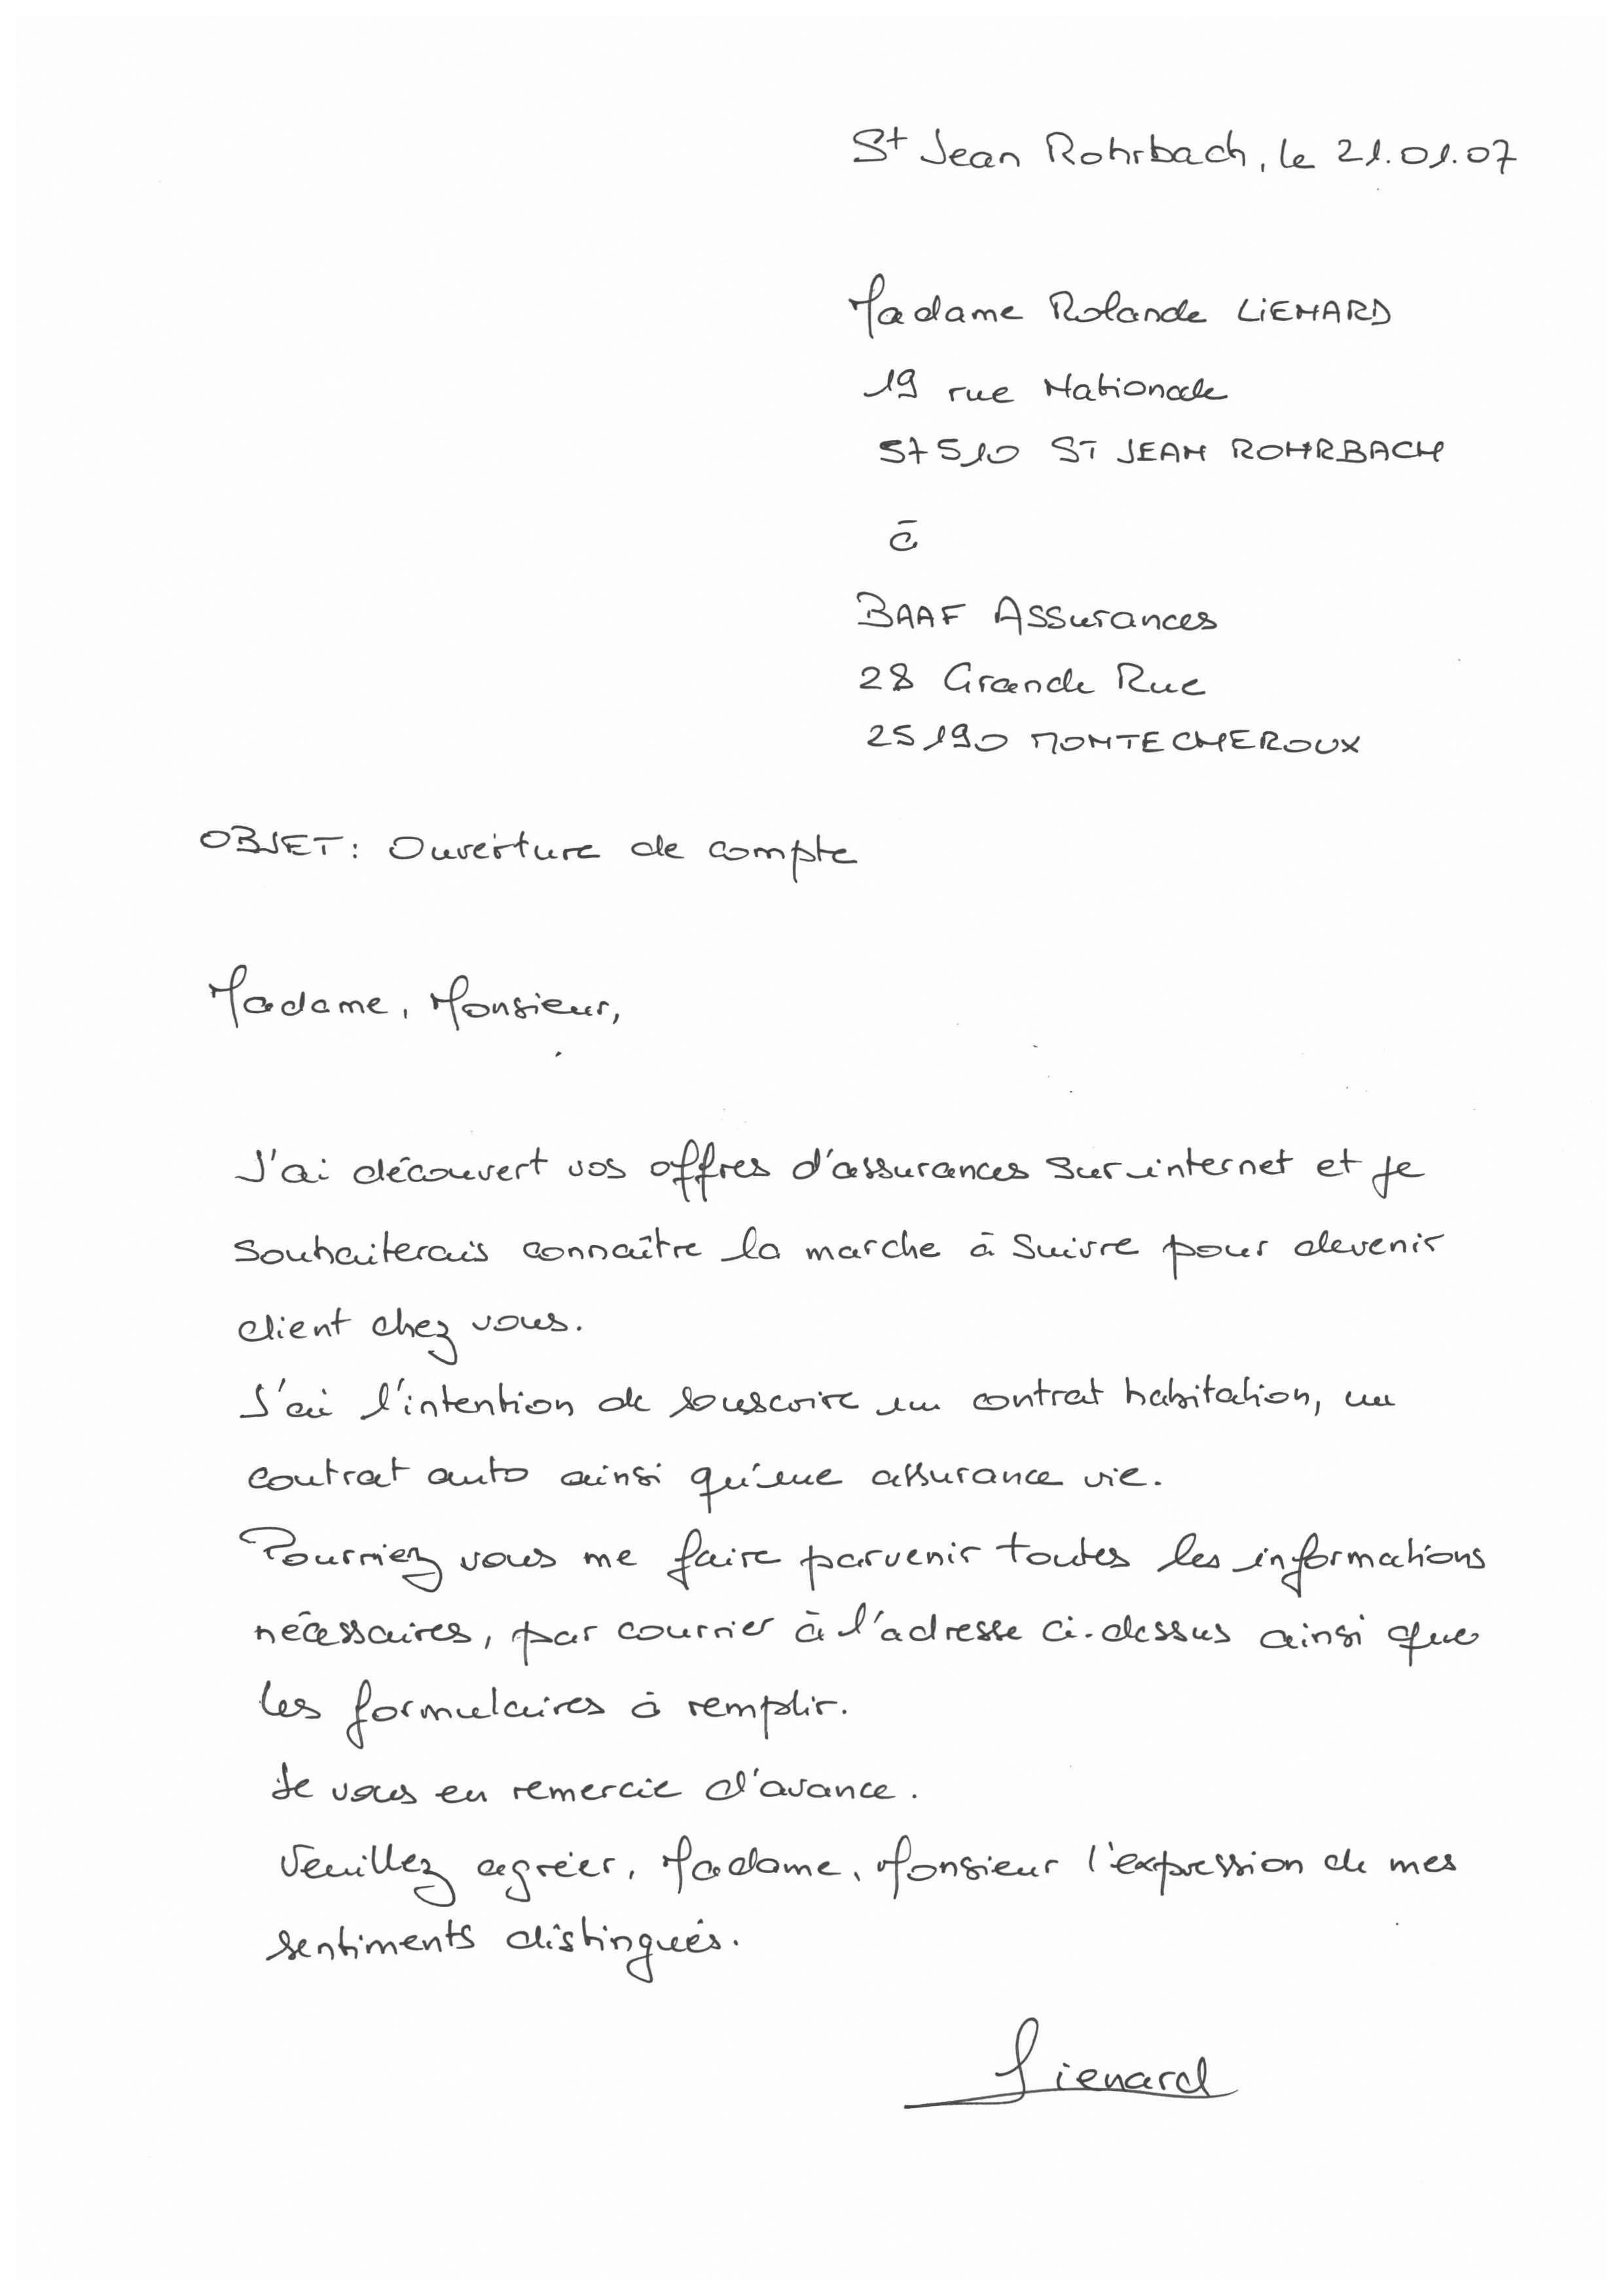 St Jean Rohrbach, le 21.01.07
Madame Rolande LIENARD
19 rue Nationale
57510 ST JEAN ROHRBACH
à
BAAF Assurances
28 Grande Rue
25190 MONTECHEROUX
OBJET: Ouverture de compte
Madame, Monsieur,
J'ai découvert vos offres d'assurances sur internet et je
souhaiterais connaître la marche à suivre pour devenir
client chez vous.
J'ai l'intention de souscrire un contrat habitation, un
contrat auto ainsi qu'une assurance vie.
Pourriez vous me faire parvenir toutes les informations
nécessaires, par courrier à l'adresse ci-dessus ainsi que
les formulaires à remplir.
Je vous en remercie d'avance.
Veuillez agréer, Madame, Monsieur l'expression de mes
sentiments distingués.
Lienard